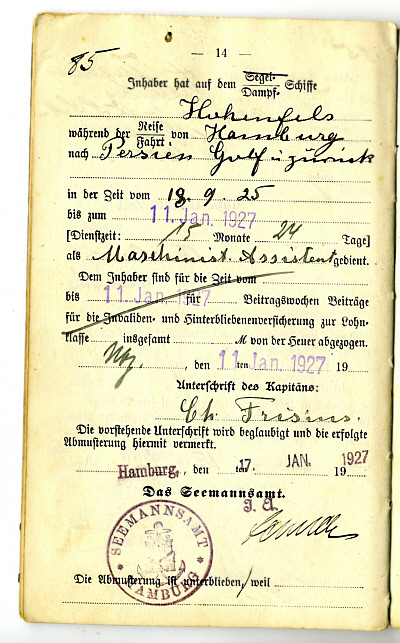 — 14 —
85
Inhaber hat auf dem Segel- Dampf- Schiffe
Hohenfels
während der Reise Fahrt von Hamburg
nach Persien Golf u zurück
in der Zeit vom 18. 9. 25
bis zum 11. Jan. 1927
[Dienstzeit: 15 Monate 24 Tage]
als Maschinist. Assistent gedient.
Dem Inhaber sind für die Zeit vom
bis 11. Jan. 1927 für Beitragswochen Beiträge
für die Invaliden- und Hinterbliebenenversicherung zur Lohn-
klasse insgesamt M von der Heuer abgezogen.
, den 11. Jan. 1927 ten 19
Unterschrift des Kapitäns:
Ch. Frisius.
Die vorstehende Unterschrift wird beglaubigt und die erfolgte
Abmusterung hiermit vermerkt.
Hamburg, den 17. ten JAN. 1927 19
Das Seemannsamt.
I. A.
SEEMANNSAMT
HAMBURG
Die Abmusterung ist unterblieben, weil